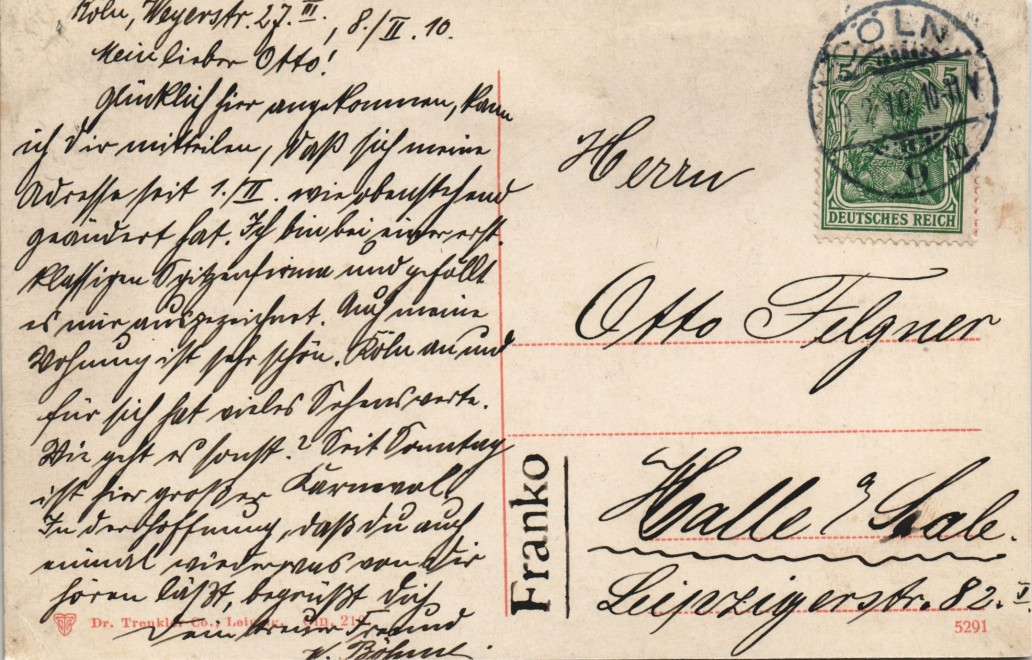 Köln, Weyerstr. 27. III. , 8./II. 10.
Mein lieber Otto!
Glücklich hier angekommen, kann
ich Dir mitteilen, daß sich meine
Adresse seit 1./II. wie obenstehend
geändert hat. Ich bin bei einer erst-
klassigen Spitzenfirma und gefällt
es mir ausgezeichnet. Auch meine
Wohnung ist sehr schön. Köln an und
für sich hat vieles Sehenswerte.
Wie geht es sonst? Seit Sonntag
ist hier großer Karneval.
In der Hoffnung, daß du auch
einmal wieder was von Dir
hören läßt, begrüßt Dich
Dein treuer Freund
Böhme.
CÖLN
5 5
DEUTSCHES REICH
Herrn
Otto Felgner
Halle a/Saale.
Leipzigerstr. 82. I
Franko
Dr. Trenkler Co., Leipzig. Cln. 21
5291